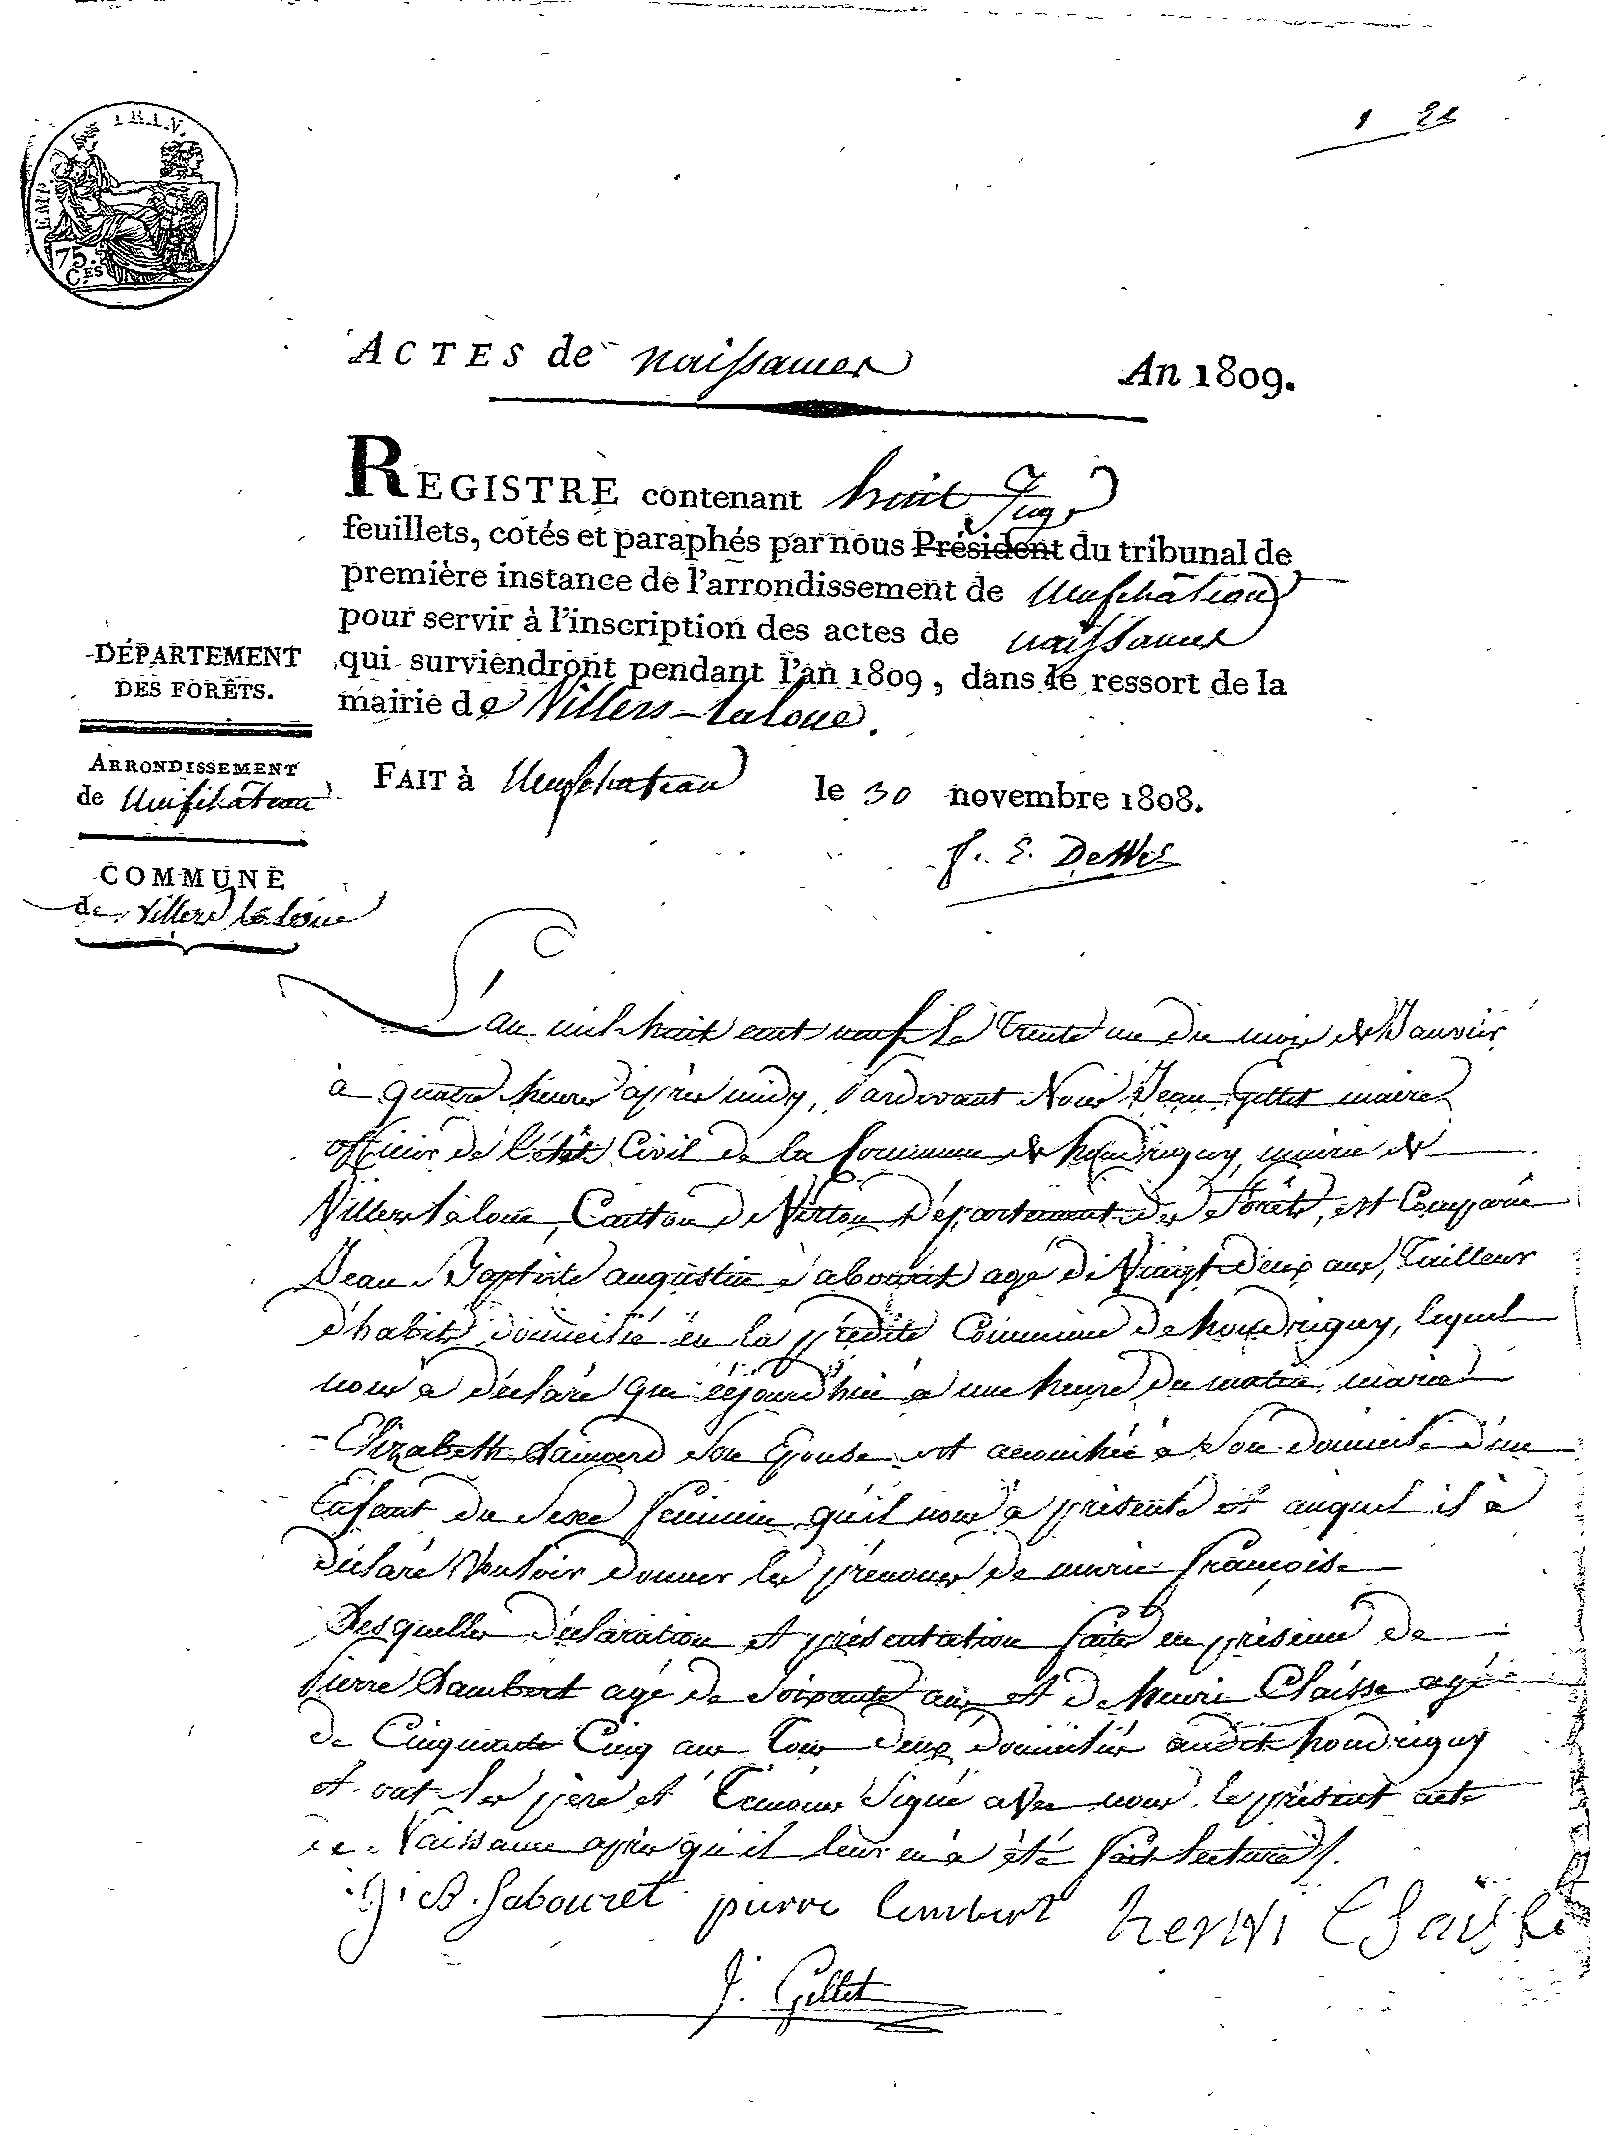 1 22
EMP. TRIN.
75. Ces
ACTES de naissances An 1809.
REGISTRE contenant huit
Juge
feuillets, cotés et paraphés par nous Président du tribunal de
première instance de l'arrondissement de Neufchâteau
pour servir à l'inscription des actes de naissances
qui surviendront pendant l'an 1809, dans le ressort de la
mairie de Villers-laloue.
FAIT à Neufchateau le 30 novembre 1808.
DÉPARTEMENT
DES FORÊTS.
ARRONDISSEMENT
de Neufchâteau
COMMUNE
de Villers la loue
L'an mil huit cent neuf le trente un du mois de Janvier
à quatre heures après midy, Pardevant Nous Jean Gillet maire
officier de l'état Civil de la Commune de houdrigny, mairie de
Villers laloue, Canton de Virton Département des Forêts, est Comparu
Jean Baptiste augustin Sabouret agé de Vingt deux ans, Tailleur
d'habits domicilié en la prédite Commune de houdrigny, lequel
nous a déclaré que cejourd'hui à une heure du matin, marie
Elizabeth Lainard son Epouse est accouchée a son domicile d'un
Enfant du Sexe féminin qu'il nous a présenté et auquel il à
déclaré Vouloir donner les prénoms de marie françoise
Desquelles déclaration et présentation faite en présence de
Pierre Lambert agé de Soixante ans et de henri Claisse agé
de Cinquante Cinq ans tous deux domiciliés audit houdrigny
et ont les père et Témoins Signé avec nous le présent acte
de Naissance après qu'il leur en a été fait lecture /.
J. B. Sabouret pierre lembert henri Claisse
J. Gillet